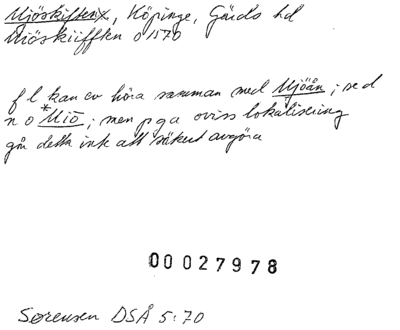 Mjöskiftenx, Köpinge, Gärds hd
Miöskiifften ō 1570
f l kan ev höra samman med Mjöån; se d
n o *Miö; men pga oviss lokalisering
går detta inte att säkert avgöra
00027978
Sørensen DSÅ 5:70